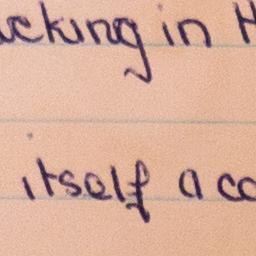 cking in H
itself a cc